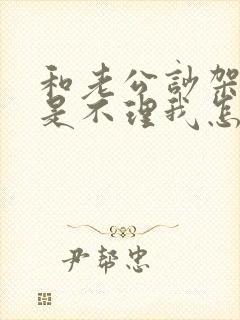 和老公訡架
是不理我怎
尹帮忠